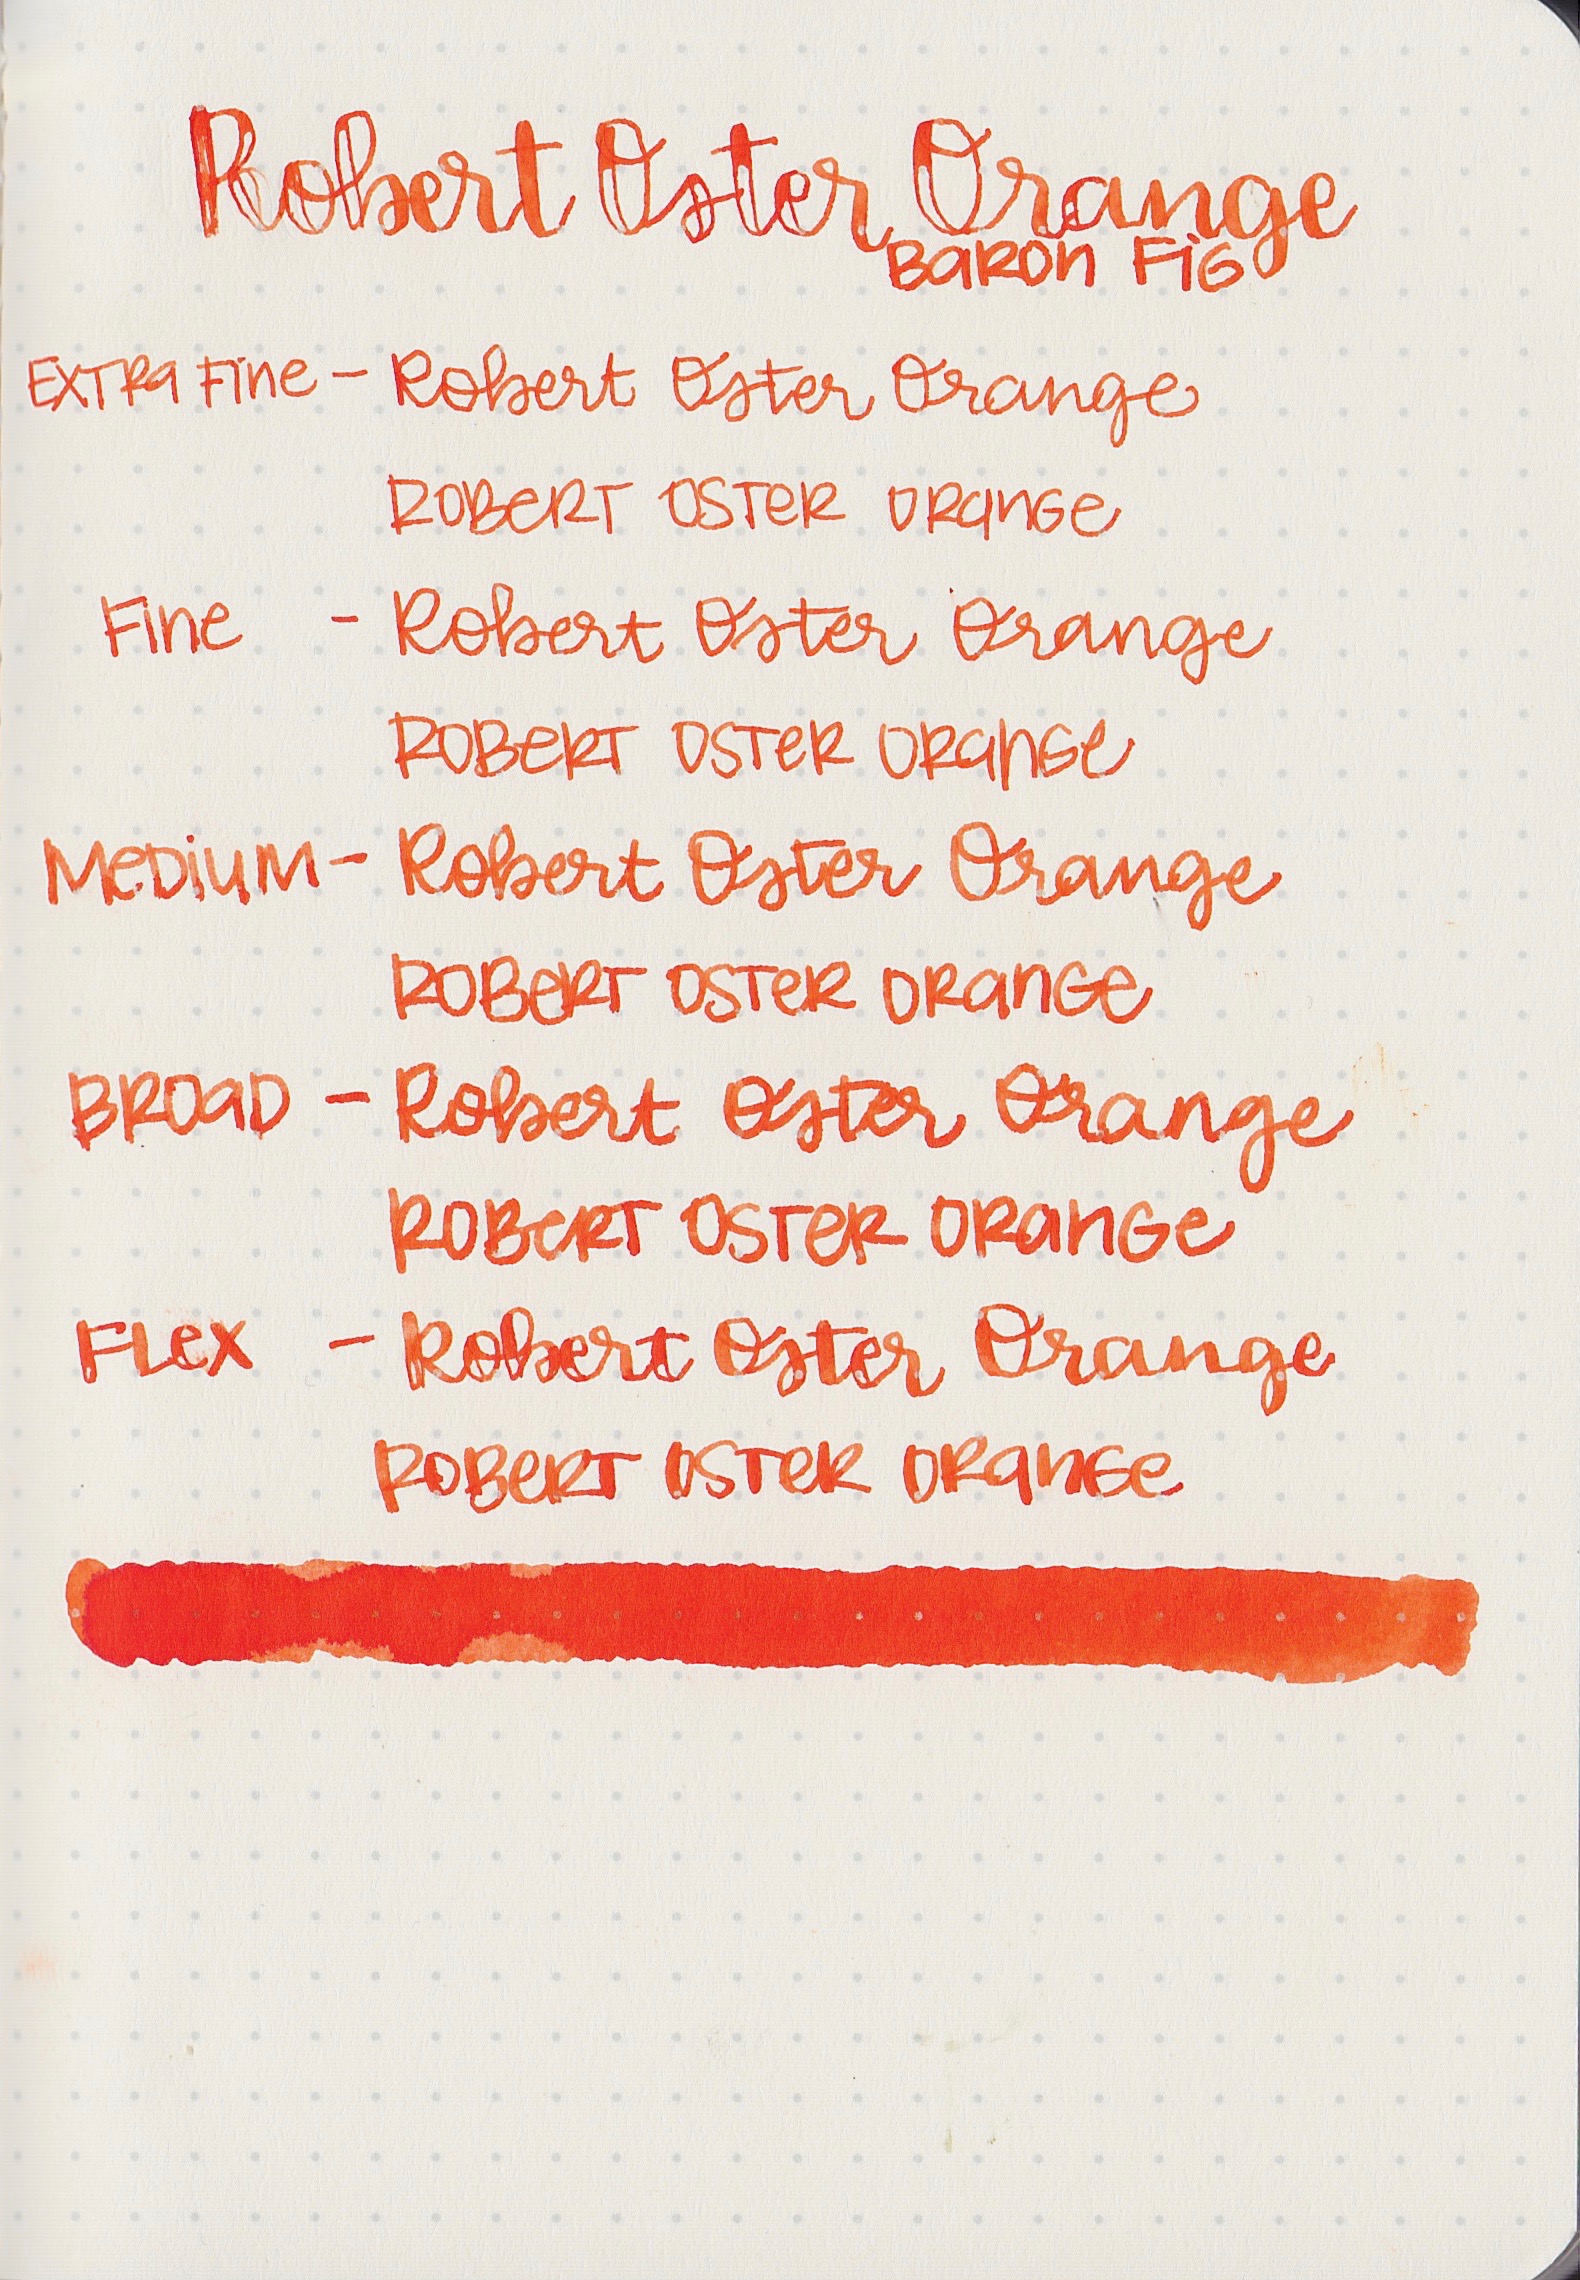 Robert Oster Orange
BARON FIG
EXTRA FINE - Robert Oster Orange
ROBERT OSTER ORANGE
FINE - Robert Oster Orange
ROBERT OSTER ORANGE
MEDIUM - Robert Oster Orange
ROBERT OSTER ORANGE
BROAD - Robert Oster Orange
ROBERT OSTER ORANGE
FLEX - Robert Oster Orange
ROBERT OSTER ORANGE